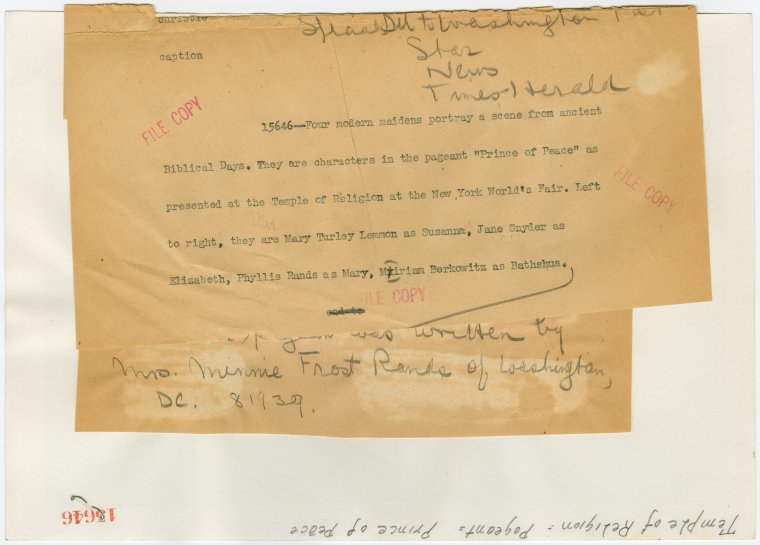 christie
caption
Special Del to Washington Post
Star
News
Times-Herald
FILE COPY
15646--Four modern maidens portray a scene from ancient
Biblical Days. They are characters in the pageant "Prince of Peace" as
presented at the Temple of Religion at the New York World's Fair. Left
to right, they are Mary Turley Lemmon as Susanna, Jane Snyder as
Elizabeth, Phyllis Rands as Mary, Miriam Berkowitz as Bathshua.
FILE COPY
FILE COPY
was written by
Mrs. Minnie Frost Rands of Washington,
DC. 81939.
15646
Temple of Religion - Pageant - Prince of Peace